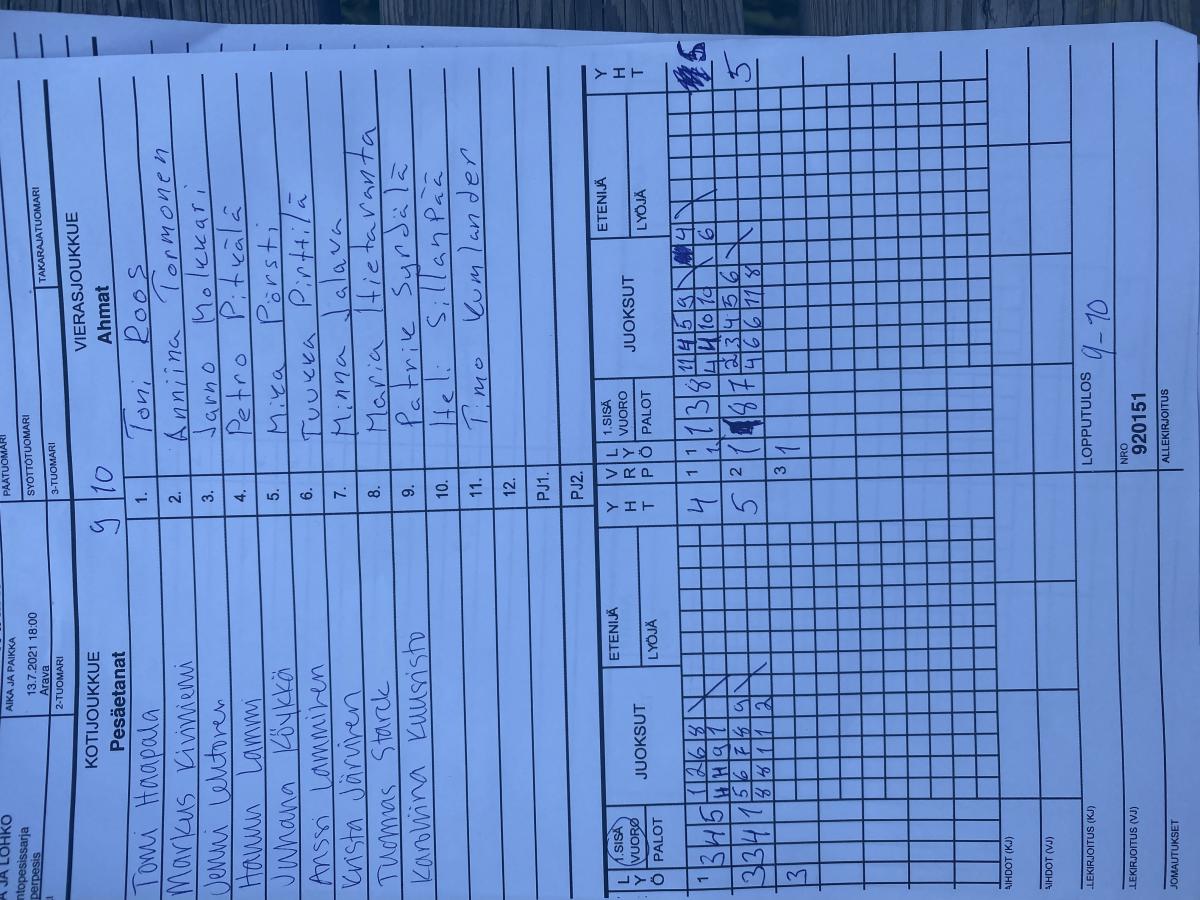 A JA LOHKO
ntopesissarja
perpesis
AIKA JA PAIKKA
13.7.2021 18:00
Arava
2-TUOMARI
PÄÄTUOMARI
SYÖTTÖTUOMARI
3-TUOMARI
TAKARAJATUOMARI
KOTIJOUKKUE
Pesäetanat
9 10
VIERASJOUKKUE
Ahmat
Tomi Haapala 1. Toni Roos
Markus Kiviniemi 2. Anniina Tormonen
Jenni Lehtonen 3. Jarno Molkkari
Hannu Lammi 4. Petro Pitkälä
Juhana Köykkö 5. Mika Pörsti
Anssi Lamminen 6. Tuukka Pirttilä
Krista Järvinen 7. Minna Jalava
Tuomas Starck 8. Maria Hietaranta
Karoliina Kuusisto 9. Patrik Syrdälä
10. Heli Sillanpää
11. Timo Kumlander
12.
PJ1.
PJ2.
L Y Ö 1.SISÄ VUORO PALOT JUOKSUT ETENIJÄ LYÖJÄ Y H T V R P L Y Ö 1.SISÄ VUORO PALOT JUOKSUT ETENIJÄ LYÖJÄ Y H T
1 3 4 5 1 2 6 8 4 1 1 1 3 8 11 4 5 9 4 5
4 4 9 1 4 4 10 10 6
3 3 4 1 5 6 7 8 9 5 2 1 8 7 2 3 4 5 6 5
8 8 1 1 2 4 6 6 11 8
3 3 1
AIHDOT (KJ)
AIHDOT (VJ)
LOPPUTULOS 9-10
LLEKIRJOITUS (KJ)
LLEKIRJOITUS (VJ)
NRO
920151
JOMAUTUKSET
ALLEKIRJOITUS